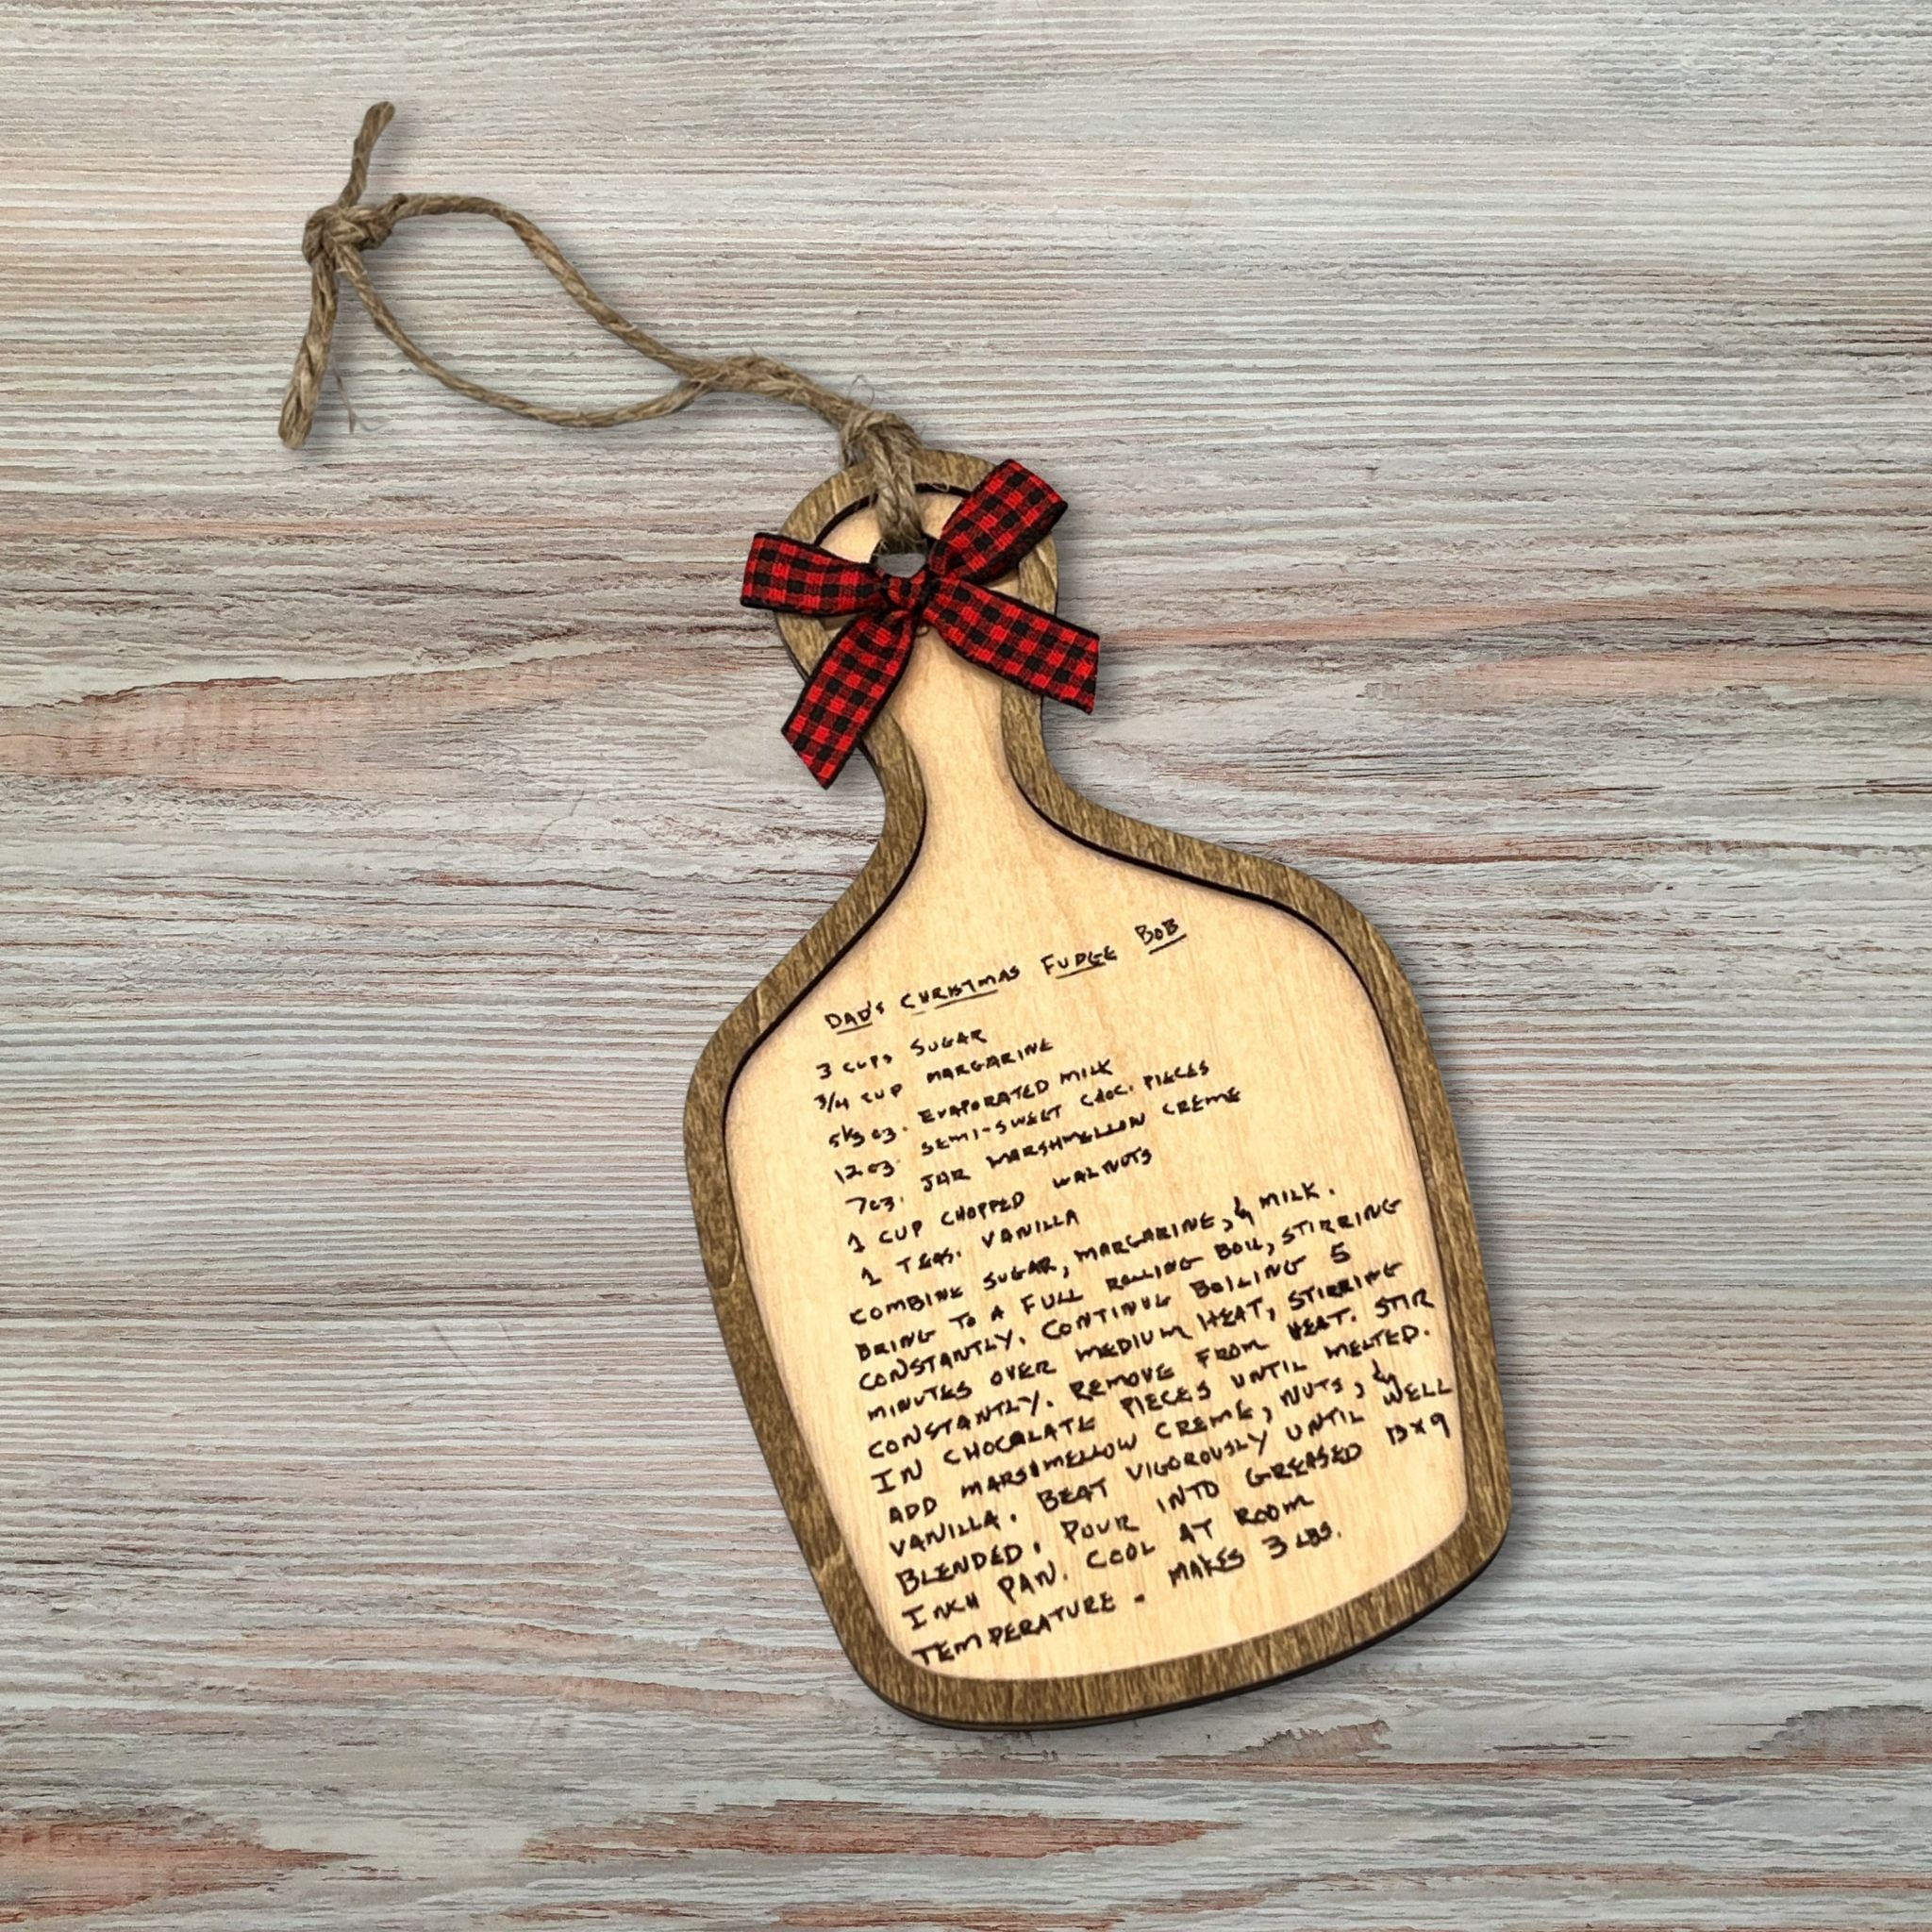 DAD'S CHRISTMAS FUDGE BOB
3 CUPS SUGAR
3/4 CUP MARGARINE
5 1/3 OZ. EVAPORATED MILK
12 OZ. SEMI-SWEET CHOC. PIECES
7 OZ. JAR MARSHMELLOW CREME
1 CUP CHOPPED WALNUTS
1 TEAS. VANILLA
COMBINE SUGAR, MARGARINE, & MILK.
BRING TO A FULL ROLLING BOIL, STIRRING
CONSTANTLY. CONTINUE BOILING 5
MINUTES OVER MEDIUM HEAT, STIRRING
CONSTANTLY. REMOVE FROM HEAT. STIR
IN CHOCOLATE PIECES UNTIL MELTED.
ADD MARSHMELLOW CREME, NUTS, &
VANILLA. BEAT VIGOROUSLY UNTIL WELL
BLENDED. POUR INTO GREASED 13 x 9
INCH PAN. COOL AT ROOM
TEMPERATURE - MAKES 3 LBS.